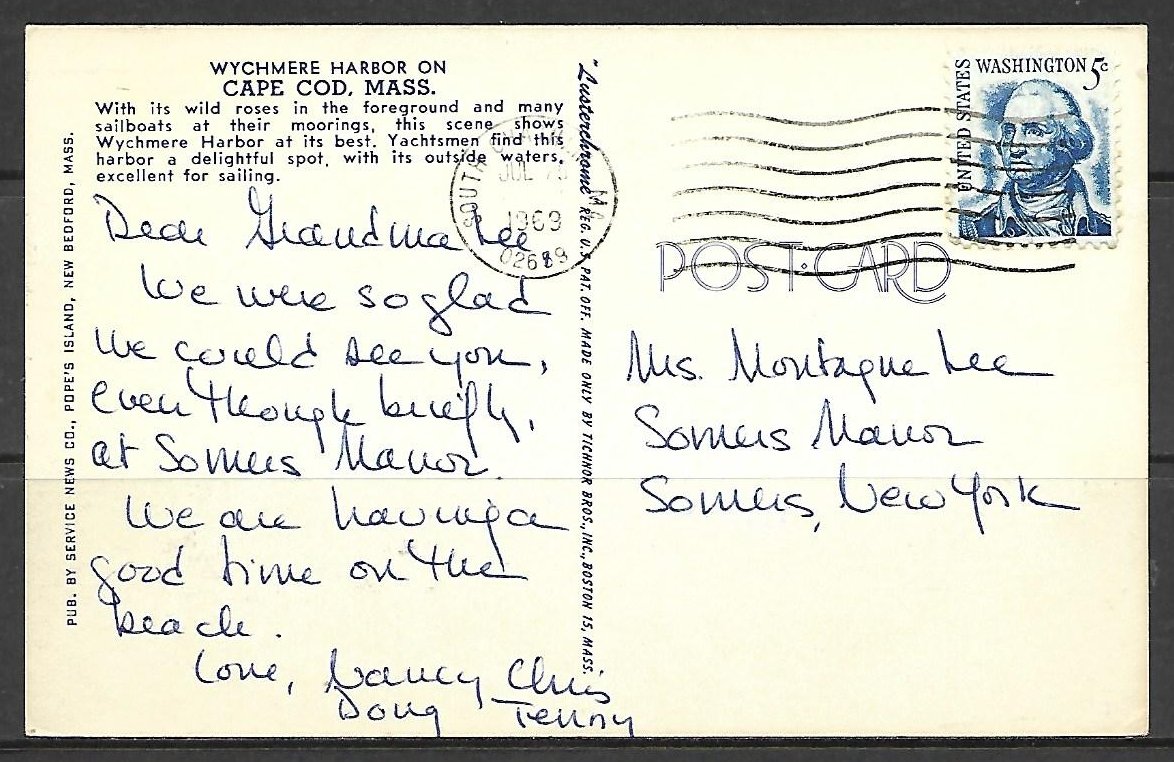 WYCHMERE HARBOR ON
CAPE COD, MASS.
With its wild roses in the foreground and many
sailboats at their moorings, this scene shows
Wychmere Harbor at its best. Yachtsmen find this
harbor a delightful spot, with its outside waters,
excellent for sailing.
Dear Grandma Lee
We were so glad
we could see you,
even though briefly,
at Somers Manor.
We are having a
good time on the
beach.
Love, Nancy, Chris
Doug Jenny
PUB. BY SERVICE NEWS CO., POPE'S ISLAND, NEW BEDFORD, MASS.
"Lusterchrome" REG. U.S. PAT. OFF. MADE ONLY BY TICHNOR BROS., INC., BOSTON 15, MASS.
SOUTH MA
JUL
1969
UNITED STATES
WASHINGTON 5c
POST CARD
Mrs. Montague Lee
Somers Manor
Somers, New York